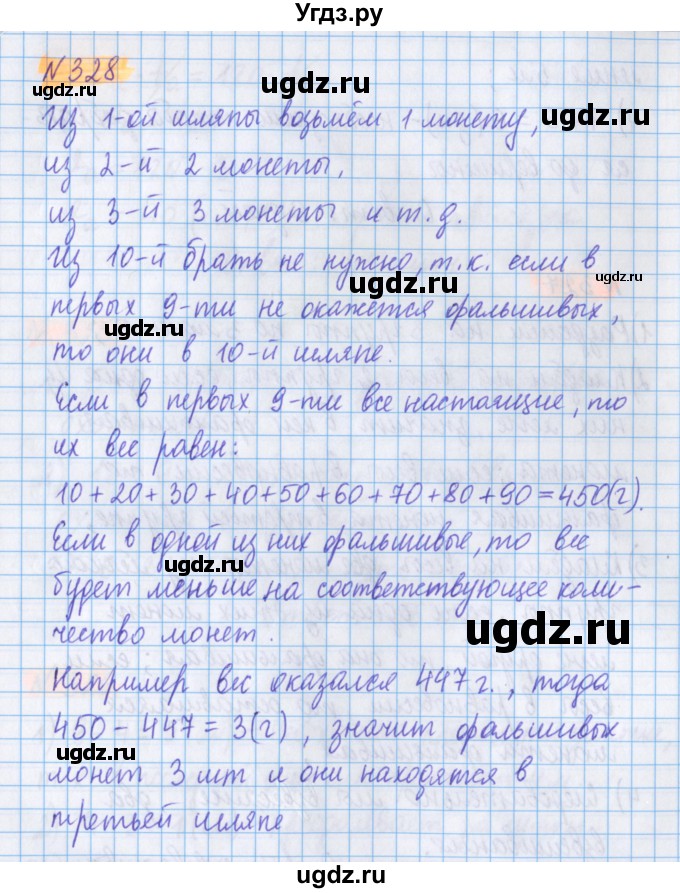 Угдз.ру
№328
ugdz.ru
ugdz.ru
Из 1-ой шляпы возьмём 1 монету,
ugdz.ru
из 2-й 2 монеты,
из 3-й 3 монеты и т.д.
ugdz.ru
Из 10-й брать не нужно, т.к. если в
ugdz.ru
ugdz.ru
первых 9-ти не окажется фальшивых,
ugdz.ru
то они в 10-й шляпе.
Если в первых 9-ти все настоящие, то
ugdz.ru
их вес равен:
ugdz.ru
10+20+30+40+50+60+70+80+90=450(г).
Если в одной из них фальшивые, то вес
ugdz.ru
будет меньше на соответствующее коли-
чество монет.
ugdz.ru
ugdz.ru
Например вес оказался 447г., тогда
450-447=3(г), значит фальшивых
ugdz.ru
ugdz.ru
монет 3 шт и они находятся в
третьей шляпе
ugdz.ru
ugdz.ru